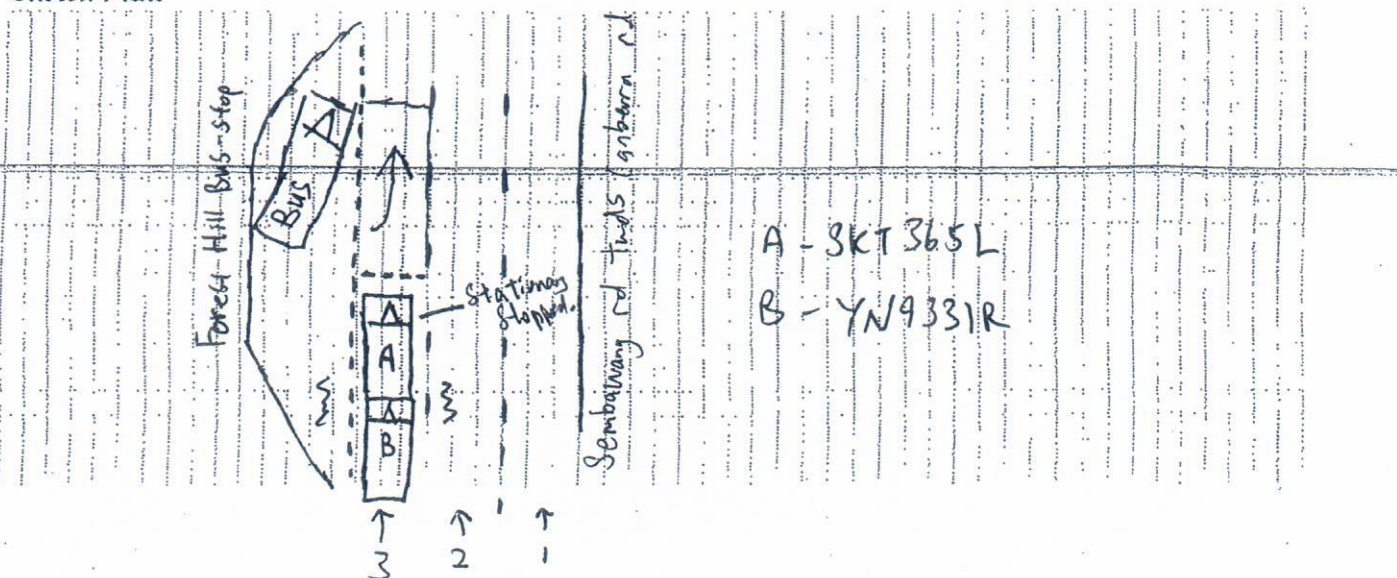 Forest Hill Bus-stop
Bus
Stationary
Stopped.
A
B
Sembawang rd twds Canberra rd
A - SKT365L
B - YN9331R
3
2
1